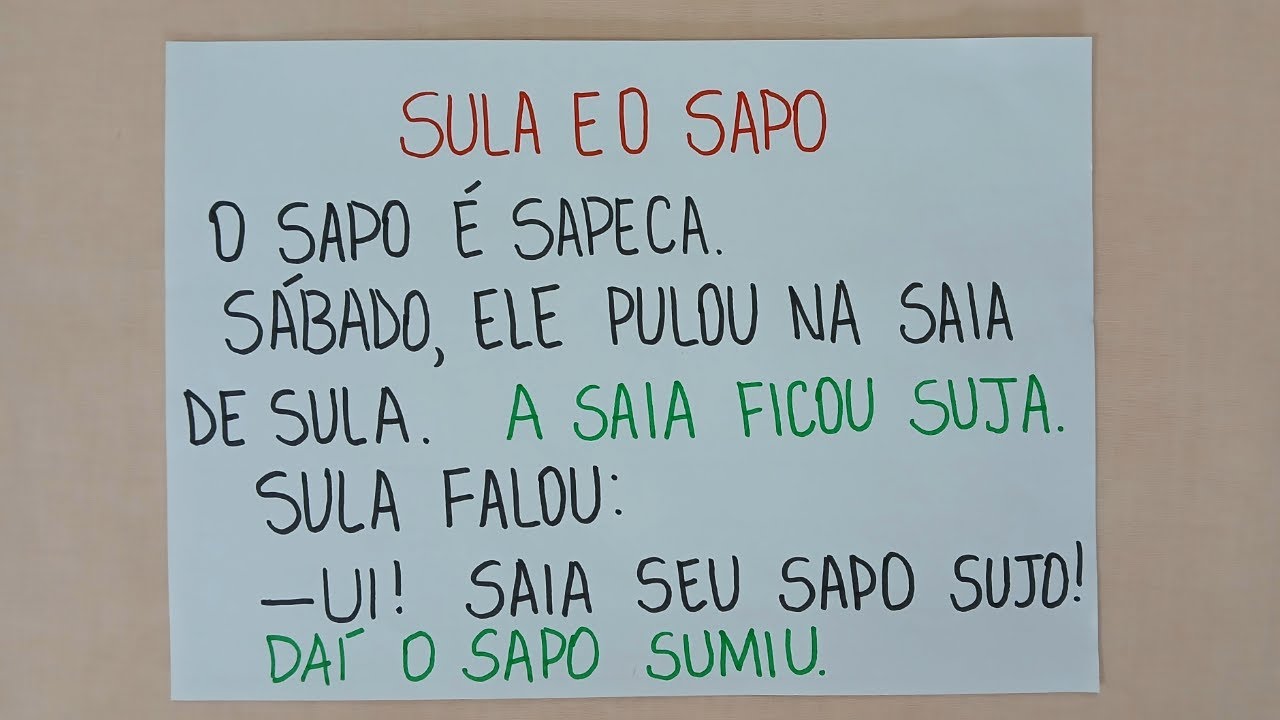 SULA E O SAPO
O SAPO É SAPECA.
SÁBADO, ELE PULOU NA SAIA
DE SULA. A SAIA FICOU SUJA.
SULA FALOU:
—UI! SAIA SEU SAPO SUJO!
DAÍ O SAPO SUMIU.